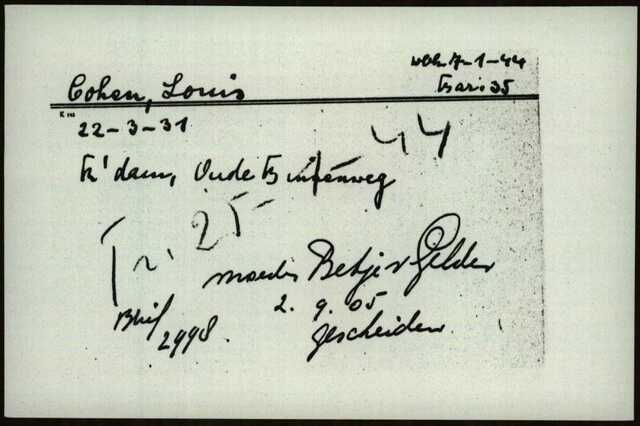 Wbk. 7-1-44
Cohen, Louis
Bar. 35
22-3-31
R'dam, Oude Binnenweg
44
Tr. 25
moeder Betje v Gelder
2.9.05
2998.
gescheiden